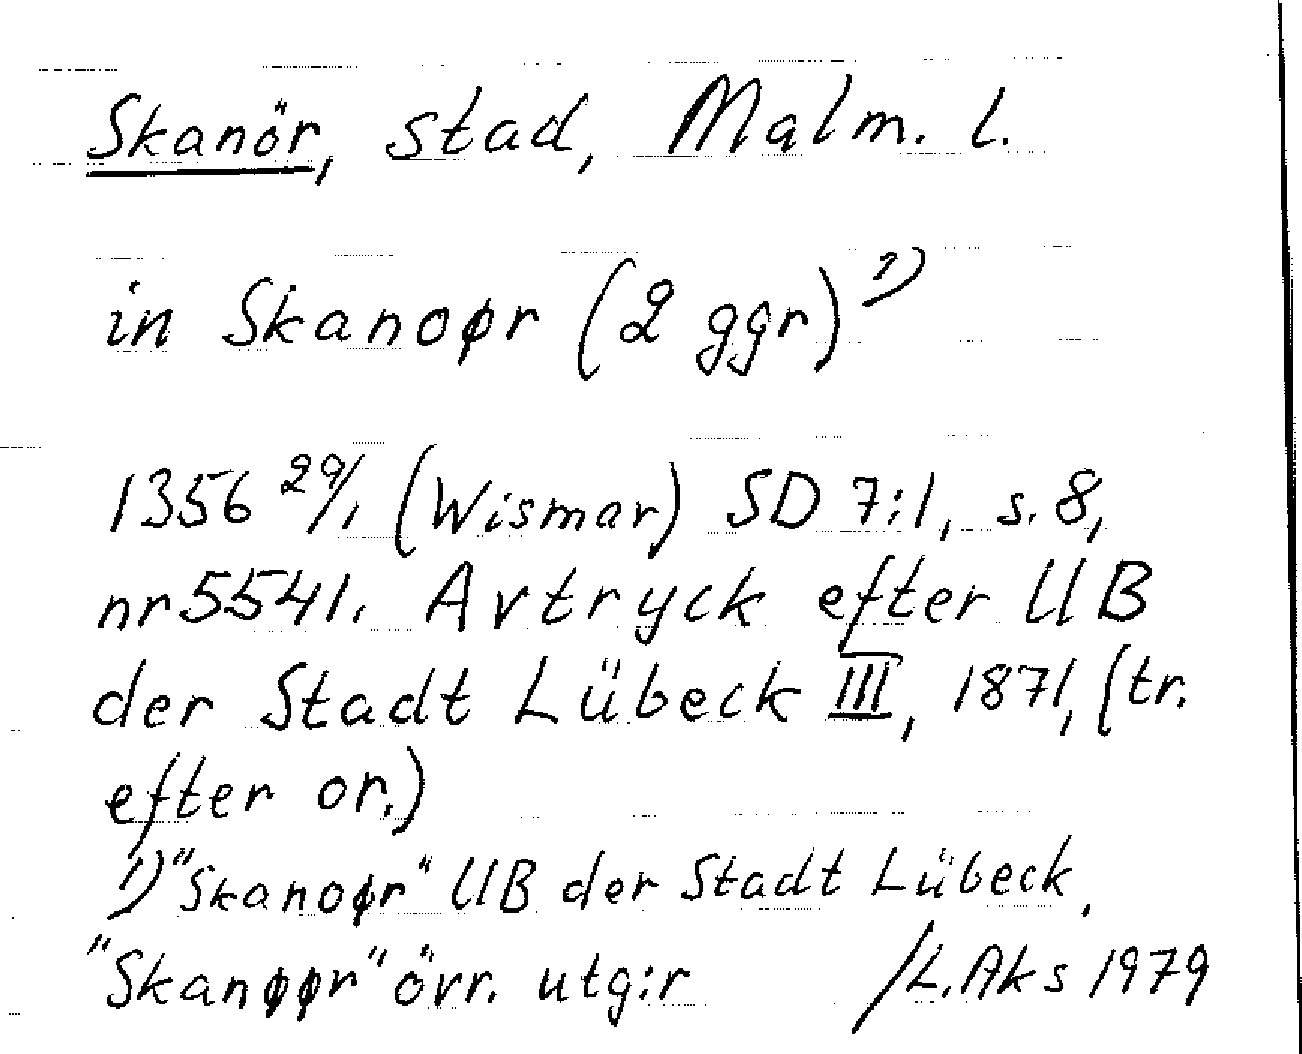 Skanör, stad, Malm. l.
in Skanoør (2 ggr) 1)
1356 29/1 (Wismar) SD 7:1, s. 8,
nr 5541. Avtryck efter UB
der Stadt Lübeck III, 1871, (tr.
efter or.)
1) "Skanoør" UB der Stadt Lübeck,
"Skanøør" övr. utg:r /L. Aks 1979